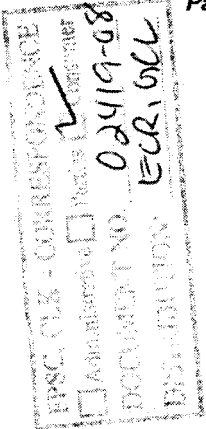 Pa
FPSC, CLK - CORRESPONDENCE
☐ Administrative ☐ Parties ☑ Consumer
DOCUMENT NO. 02419-08
DISTRIBUTION: ECR, GCL